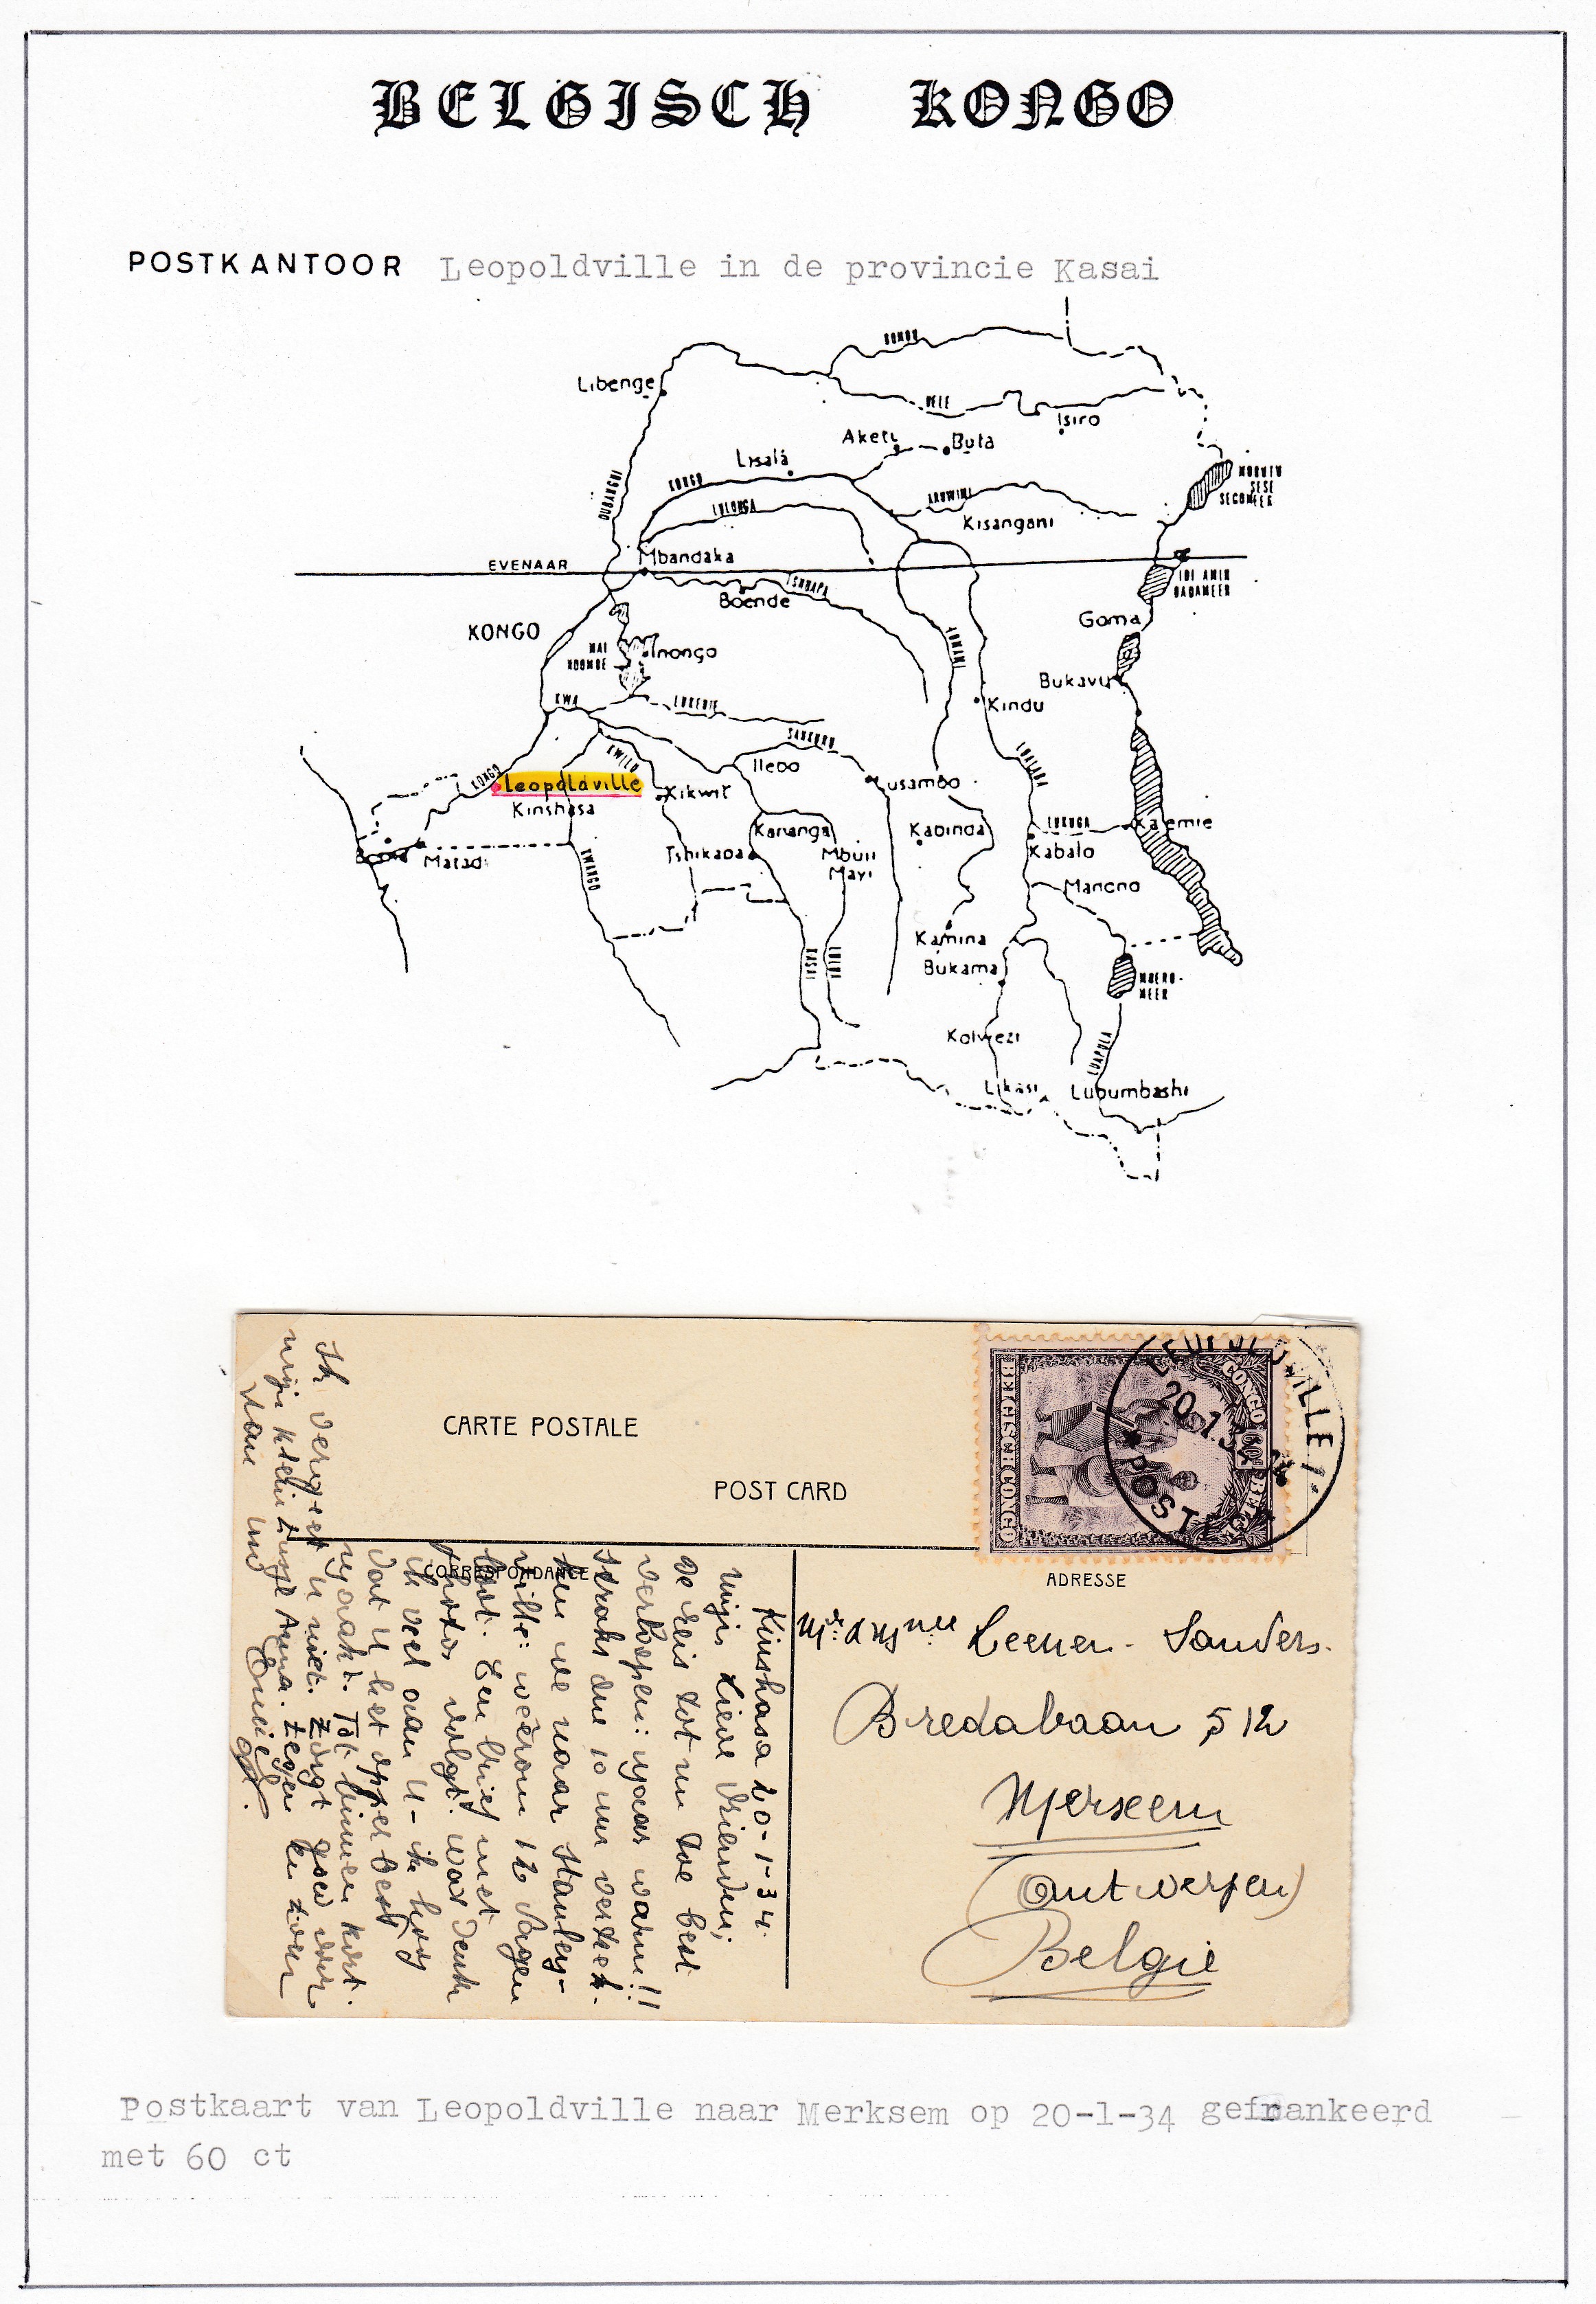 BELGISCH KONGO
POSTKANTOOR Leopoldville in de provincie Kasai
BOMU
Libenge
UELE
Isiro
Aketi
Buta
Lisala
KONGO
UBANGI
LULONGA
ARUWIMI
Kisangani
SESE
SECOMEER
EVENAAR
Mbandaka
TSHUAPA
Boende
IDI AMIN
DADAMEER
Goma
KONGO
MAI
NDOMBE
Inongo
LOMAMI
Bukavu
KWA
LUKENIE
Kindu
SANKURU
KWILU
Ilebo
LUALABA
KONGO
Leopoldville
Kikwit
Lusambo
Kinshasa
Kananga
Kabinda
LUKUGA
Kalemie
Boma
Matadi
Tshikapa
Mbuji
Mayi
Kabalo
KWANGO
Manono
Kamina
KASAI
LULUA
Bukama
MWERU-
MEER
Kolwezi
LUAPULA
Likasi
Lubumbashi
CARTE POSTALE
POST CARD
CORRESPONDANCE
ADRESSE
BELGISCH CONGO
CONGO 60c BELGE
LEOPOLDVILLE 1
20.1.34
POSTES
Kinshasa 20-1-34.
Mijn Lieve Vrienden;
De reis tot nu toe best
verlopen: maar warm!!
Straks drie 10 uur vertrek-
ken we naar Stanley-
ville: weerom 12 dagen
boot. Een brief met
photos volgt. Wat denk
ik veel aan U - ik hoop
dat U het opperbest
maakt. Tot binnen kort.
Ik vergeet U niet. Zorgt goed voor
mijn klein zusje Anna. Zegen en zoen
van
Mr & Mme Leenen - Sanders.
Bredabaan 512
Merxem
(Antwerpen)
België
Postkaart van Leopoldville naar Merksem op 20-1-34 gefrankeerd
met 60 ct